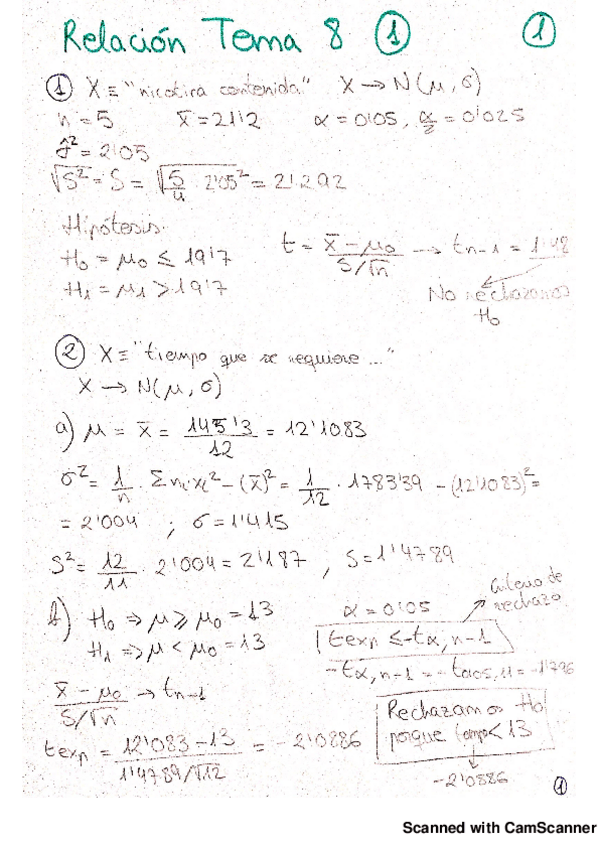 Relación Tema 8 ① ①
① X ≡ "nicotina contenida" X → N(μ, σ)
n = 5 x̄ = 21'2 α = 0'05, α/2 = 0'025
σ̂² = 2'05
√S² = S = √(5/4 · 2'05²) = 2'292
Hipótesis:
H₀ = μ₀ ≤ 19'7
H₁ = μ₁ > 19'7
t = (x̄ - μ₀)/(S/√n) → tn-1 = 1'48
No rechazamos
H₀
② X ≡ "tiempo que se requiere ..."
X → N(μ, σ)
a) μ = x̄ = 145'3/12 = 12'1083
σ² = 1/n · Σ nᵢ·xᵢ² - (x̄)² = 1/12 · 1783'39 - (12'1083)² =
= 2'004 ; σ = 1'415
S² = 12/11 · 2'004 = 2'187 , S = 1'4789
b) H₀ ⇒ μ ≥ μ₀ = 13
H₁ ⇒ μ < μ₀ = 13
α = 0'05
Criterio de
rechazo
texp ≤ -tα, n-1
-tα, n-1 = -t0'05, 11 = -1'796
(x̄ - μ₀)/(S/√n) → tn-1
texp = (12'083 - 13)/(1'4789/√12) = -2'0886
Rechazamos H₀
porque < 13
-2'0886
①
Scanned with CamScanner